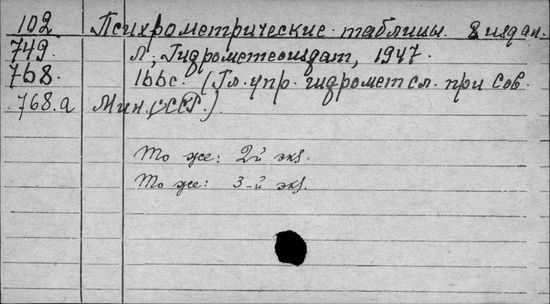 102 Психрометрические таблицы. 8 издан.
749. Л, Гидрометеоиздат, 1947.
768. 166с. (Гл. упр. гидромет сл. при Сов.
768.а Мин. СССР.)
То же: 2й экз.
То же: 3-й экз.